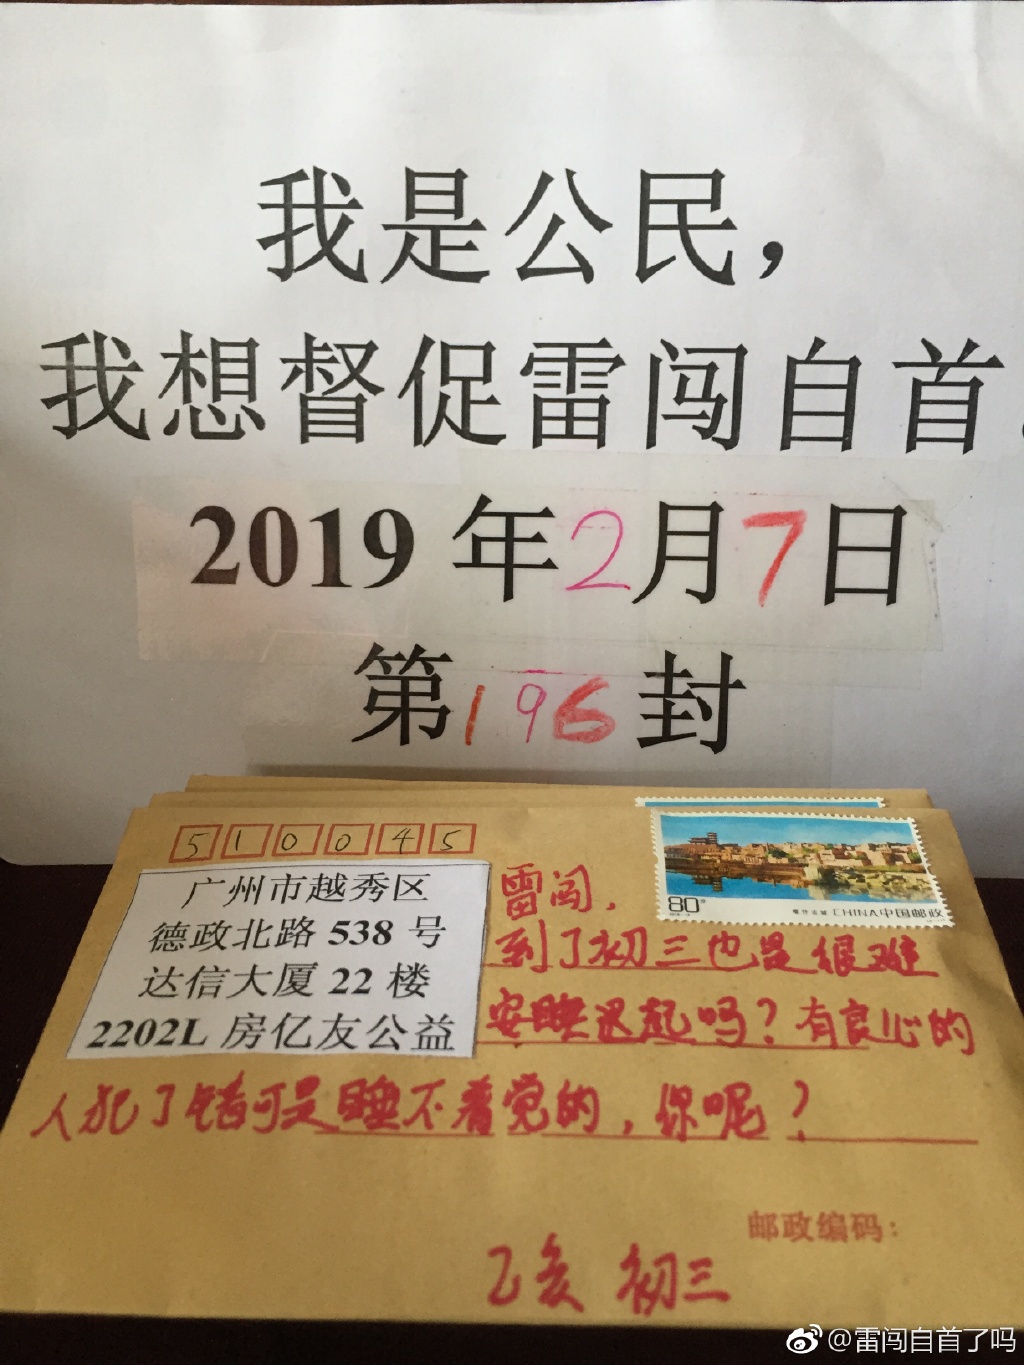 我是公民，
我想督促雷闯自首。
2019年2月7日
第196封
510045
广州市越秀区
德政北路538号
达信大厦22楼
2202L房亿友公益
80分
CHINA中国邮政
雷闯，
到了初三也是很难
安睡迟起吗？有良心的
人犯了错可是睡不着觉的，你呢？
邮政编码：
乙亥 初三
@雷闯自首了吗